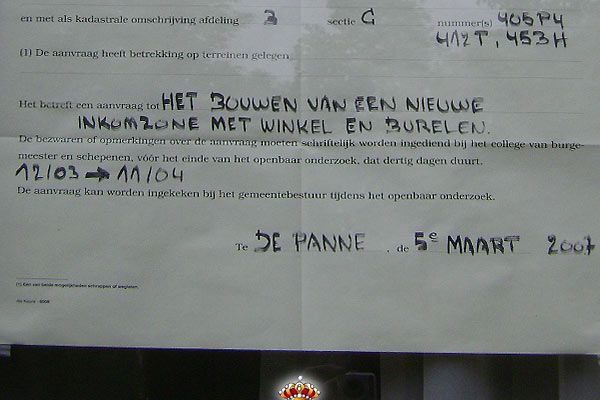 en met als kadastrale omschrijving afdeling 3 sectie C nummer(s) 405P4
412T, 453H
(1) De aanvraag heeft betrekking op terreinen gelegen
Het betreft een aanvraag tot HET BOUWEN VAN EEN NIEUWE
INKOMZONE MET WINKEL EN BURELEN.
De bezwaren of opmerkingen over de aanvraag moeten schriftelijk worden ingediend bij het college van burge-
meester en schepenen, vóór het einde van het openbaar onderzoek, dat dertig dagen duurt.
12/03 → 11/04
De aanvraag kan worden ingekeken bij het gemeentebestuur tijdens het openbaar onderzoek.
Te DE PANNE , de 5e MAART 2007
(1) Één van beide mogelijkheden schrappen of weglaten.